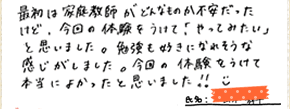 最初は家庭教師がどんなものか不安だった
けど、今回の体験をうけて「やってみたい」
と思いました。勉強も好きになれそうな
感じがしました。今回の体験をうけて
本当によかったと思いました!!
氏名: